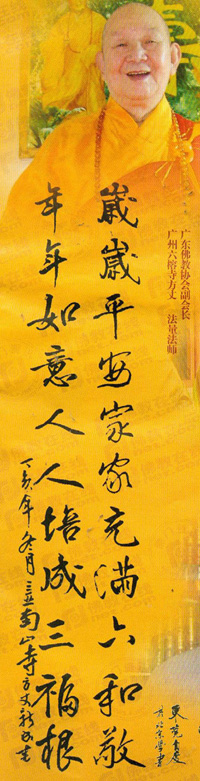 广东佛教协会副会长
广州六榕寺方丈 法量法师
歲歲平安家家充满六和敬
年年如意人人培成三福根
丁亥年冬月三亚南山寺方丈新成书